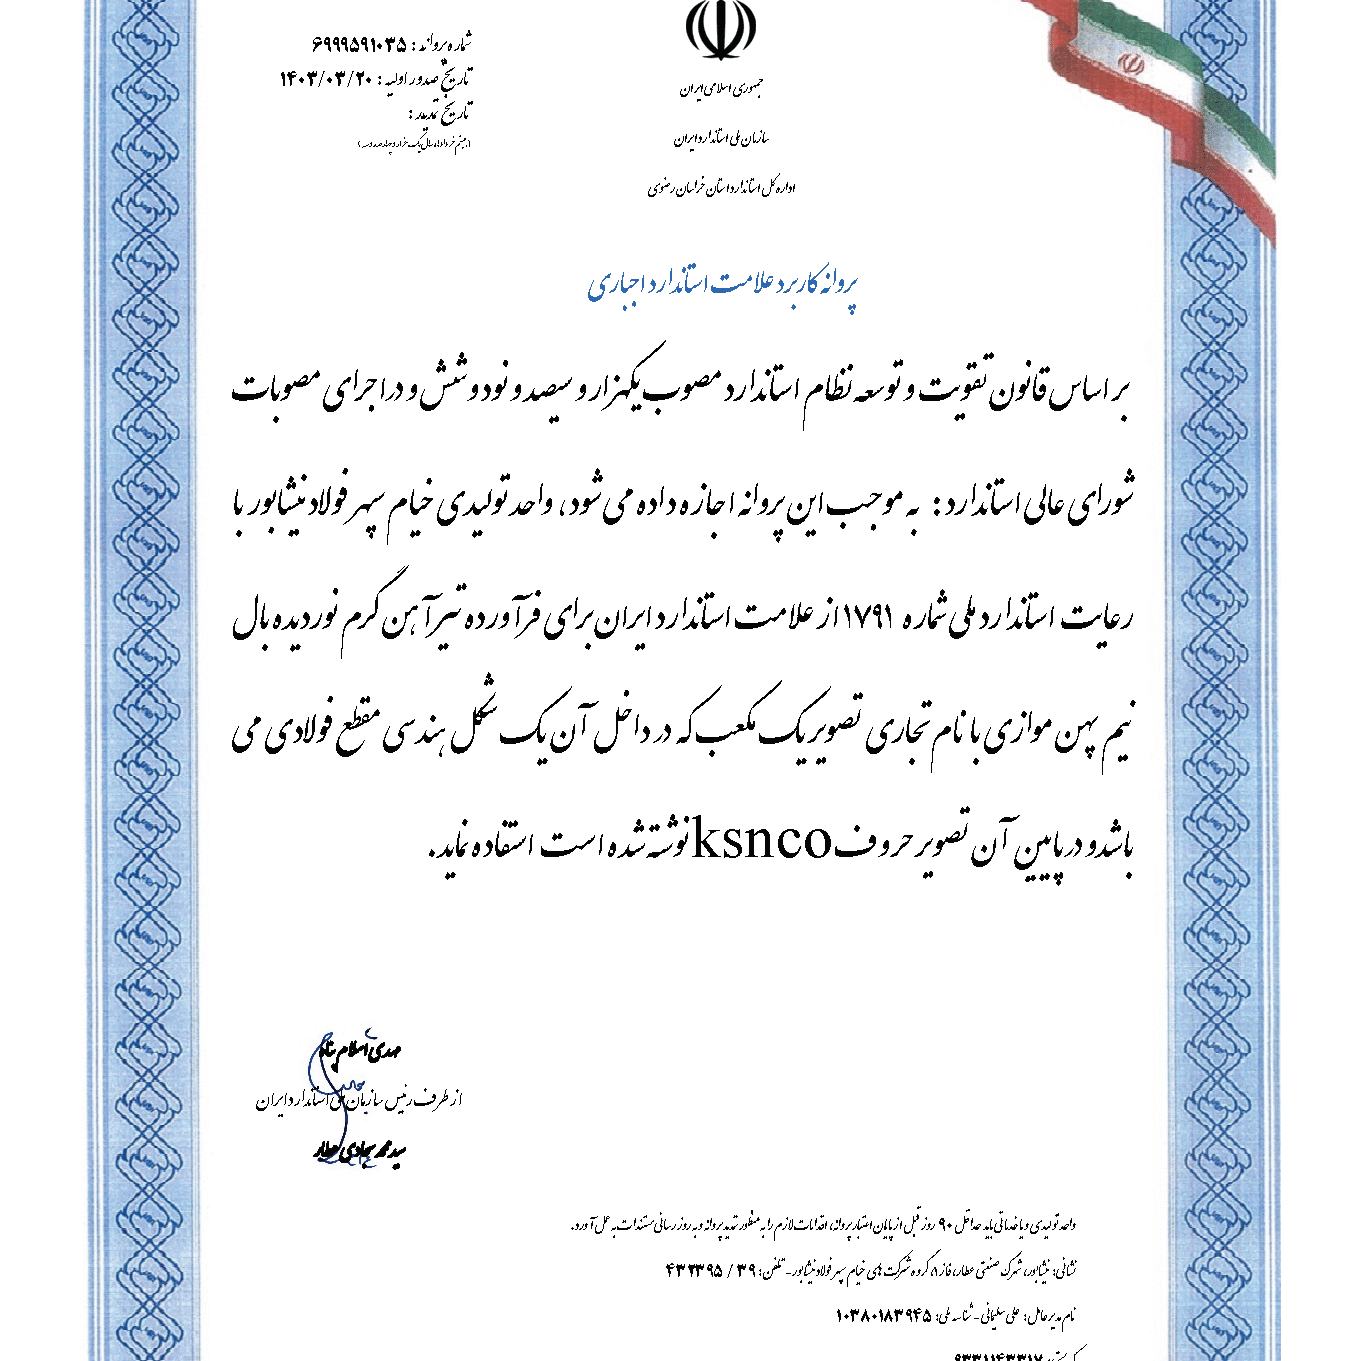 جمهوری اسلامی ایران
سازمان ملی استاندارد ایران
اداره کل استاندارد استان خراسان رضوی
شماره پروانه : ۶۹۹۹۵۹۱۰۳۵
تاریخ صدور اولیه : ۱۴۰۳/۰۳/۲۰
تاریخ تمدید :
پروانه کاربرد علامت استاندارد اجباری
بر اساس قانون تقویت و توسعه نظام استاندارد مصوب یکهزار و سیصد و نود و شش و در اجرای مصوبات
شورای عالی استاندارد : به موجب این پروانه اجازه داده می شود، واحد تولیدی خیام سپهر فولاد نیشابور با
رعایت استاندارد ملی شماره ۱۷۹۱ از علامت استاندارد ایران برای فرآورده تیرآهن گرم نوردیده بال
نیم پهن موازی با نام تجاری تصویر یک مکعب که در داخل آن یک شکل هندسی مقطع فولادی می
باشدو در پایین آن تصویر حروف ksnco نوشته شده است استفاده نماید.
مهدی اسلام پناه
از طرف رئیس سازمان ملی استاندارد ایران
سید محمد سجادی عطار
واحد تولیدی و یا خدماتی باید حداقل ۹۰ روز قبل از پایان اعتبار پروانه، اقدامات لازم را به منظور تمدید پروانه و به روز رسانی مستندات به عمل آورد.
نشانی: نیشابور، شهرک صنعتی عطار، فاز ۸، گروه شرکت های خیام سپهر فولاد نیشابور - تلفن: ۳۹ / ۴۳۲۳۹۵
نام مدیر عامل: علی سلیمانی - شناسه ملی: ۱۰۳۸۰۱۸۳۹۴۵